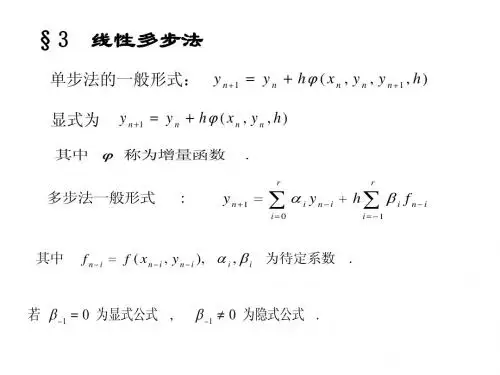 §3 线性多步法
单步法的一般形式： y_{n+1} = y_n + hφ(x_n, y_n, y_{n+1}, h)
显式为 y_{n+1} = y_n + hφ(x_n, y_n, h)
其中 φ 称为增量函数 .
多步法一般形式 : y_{n+1} = \sum_{i=0}^{r} α_i y_{n-i} + h \sum_{i=-1}^{r} β_i f_{n-i}
其中 f_{n-i} = f(x_{n-i}, y_{n-i}), α_i, β_i 为待定系数 .
若 β_{-1} = 0 为显式公式 , β_{-1} ≠ 0 为隐式公式 .